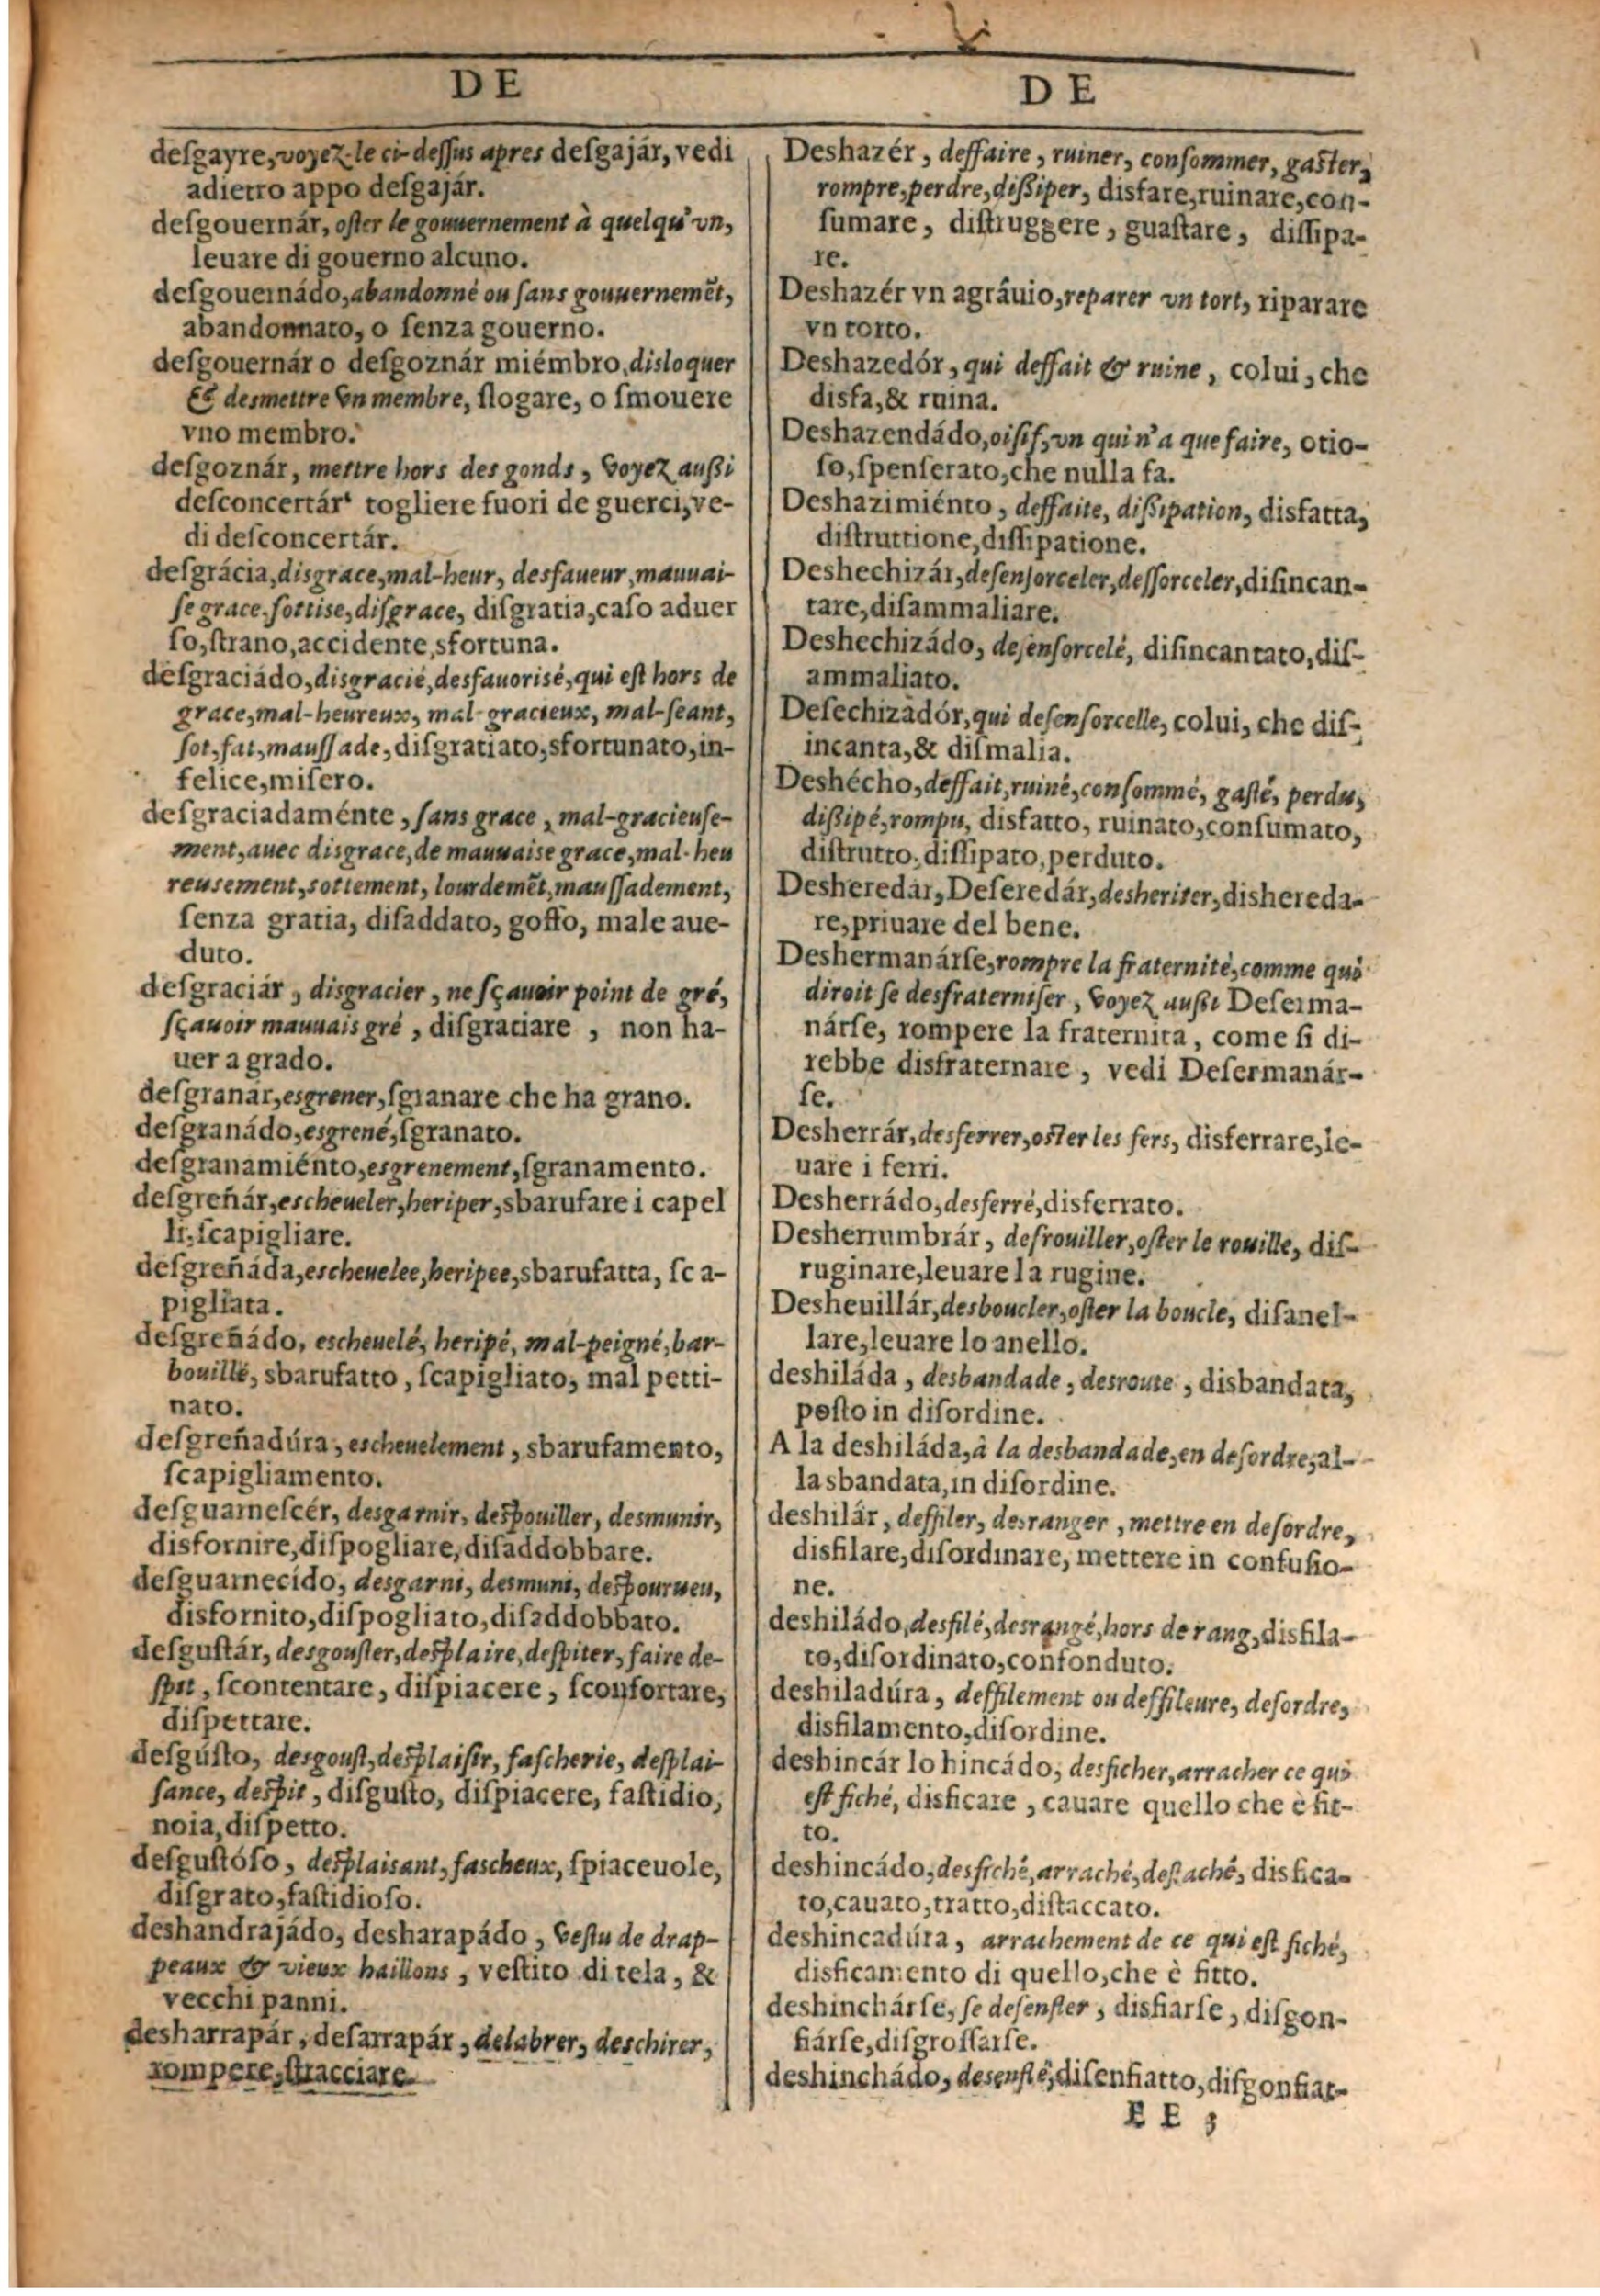 DE
deſgayre, voyez-le ci-deſſus apres deſgajár, vedi
adietro appo deſgajár.
deſgouernár, oſter le gouuernement à quelqu'vn,
leuare di gouerno alcuno.
deſgouernádo, abandonné ou ſans gouuernemẽt,
abandonnato, o ſenza gouerno.
deſgouernár o deſgoznár miémbro, disloquer
& desmettre vn membre, ſlogare, o ſmouere
vno membro.
deſgoznár, mettre hors des gonds, voyez auſſi
deſconcertár, togliere fuori de guerci, ve-
di deſconcertár.
deſgrácia, disgrace, mal-heur, desfaueur, mauuai-
ſe grace, ſottise, diſgrace, diſgratia, caſo aduer
ſo, ſtrano, accidente, sfortuna.
deſgraciádo, disgracié, desfauorisé, qui eſt hors de
grace, mal-heureux, mal-gracieux, mal-ſeant,
ſot, fat, mauſſade, diſgratiato, sfortunato, in-
felice, miſero.
deſgraciadaménte, ſans grace, mal-gracieuſe-
ment, auec disgrace, de mauuaise grace, mal-heu
reusement, sottement, lourdemẽt, mauſſadement,
ſenza gratia, diſaddato, goffo, male aue-
duto.
deſgraciár, disgracier, ne ſçauoir point de gré,
ſçauoir mauuais gré, diſgratiare, non ha-
uer a grado.
deſgranár, esgrener, ſgranare che ha grano.
deſgranádo, esgrené, ſgranato.
deſgranamiénto, esgrenement, ſgranamento.
deſgreñár, escheueler, heriper, sbarufare i capel
li, ſcapigliare.
deſgreñáda, escheuelee, heripee, sbarufatta, ſca-
pigliata.
deſgreñádo, escheuelé, heripé, mal-peigné, bar-
bouillé, sbarufatto, ſcapigliato, mal petti-
nato.
deſgreñadúra, escheuelement, sbarufamento,
ſcapigliamento.
deſguarneſcér, desgarnir, despouiller, desmunir,
disfornire, diſpogliare, diſaddobbare.
deſguarnecído, desgarni, desmuni, despourueu,
disfornito, diſpogliato, diſaddobbato.
deſguſtár, desgouſter, desplaire, deſpiter, faire de-
ſpit, ſcontentare, diſpiacere, ſconfortare,
diſpettare.
deſgúſto, desgouſt, desplaiſir, faſcherie, deſplai-
ſance, despit, diſguſto, diſpiacere, faſtidio,
noia, diſpetto.
deſguſtóſo, desplaisant, faſcheux, ſpiaceuole,
diſgrato, faſtidioſo.
deshandrajádo, desharapádo, veſtu de drap-
peaux & vieux haillons, veſtito di tela, &
vecchi panni.
desharrapár, deſarrapár, delabrer, deschirer,
rompere, ſtracciare.
DE
Deshazér, deffaire, ruiner, conſommer, gaſter,
rompre, perdre, diſsiper, disfare, ruinare, con-
ſumare, diſtruggere, guaſtare, diſſipa-
re.
Deshazér vn agráuio, reparer vn tort, riparare
vn torto.
Deshazedór, qui deffait & ruine, colui, che
disfa, & ruina.
Deshazendádo, oiſif, vn qui n'a que faire, otio-
ſo, ſpenſerato, che nulla fa.
Deshazimiénto, deffaite, diſsipation, disfatta,
diſtruttione, diſſipatione.
Deshechizár, deſenſorceler, deſſorceler, diſincan-
tare, diſammaliare.
Deshechizádo, deſenſorcelé, diſincantato, diſ-
ammaliato.
Deſechizadór, qui deſenſorcelle, colui, che diſ-
incanta, & diſmalia.
Deshécho, deffait, ruiné, conſommé, gaſté, perdu,
diſsipé, rompu, disfatto, ruinato, conſumato,
diſtrutto, diſſipato, perduto.
Desheredár, Deſeredár, desheriter, dishereda-
re, priuare del bene.
Deshermanárſe, rompre la fraternité, comme qui
diroit ſe desfraterniſer, voyez auſsi Deſerma-
nárſe, rompere la fraternita, come ſi di-
rebbe disfraternare, vedi Deſermanár-
ſe.
Desherrár, desferrer, oſter les fers, disferrare, le-
uare i ferri.
Desherrádo, desferré, disferrato.
Desherrumbrár, deſrouiller, oſter le rouille, diſ-
ruginare, leuare la rugine.
Desheuillár, desboucler, oſter la boucle, diſanel-
lare, leuare lo anello.
deshiláda, desbandade, desroute, disbandata,
poſto in diſordine.
A la deshiláda, à la desbandade, en deſordre, al-
la sbandata, in diſordine.
deshilár, deffiler, desranger, mettre en deſordre,
disfilare, diſordinare, mettere in confuſio-
ne.
deshiládo, desfilé, desrangé, hors de rang, disfila-
to, diſordinato, confonduto.
deshiladúra, deffilement ou deffileure, deſordre,
disfilamento, diſordine.
deshincár lo hincádo, desficher, arracher ce qui
eſt fiché, disficare, cauare quello che è fit-
to.
deshincádo, desfiché, arraché, destaché, disfica-
to, cauato, tratto, diſtaccato.
deshincadúra, arrachement de ce qui eſt fiché,
disficamento di quello, che è fitto.
deshinchárſe, ſe deſenfler, disfiarſe, diſgon-
fiárſe, diſgroſſarſe.
deshinchádo, desenflé, diſenfiatto, diſgonfiat-
EE 3